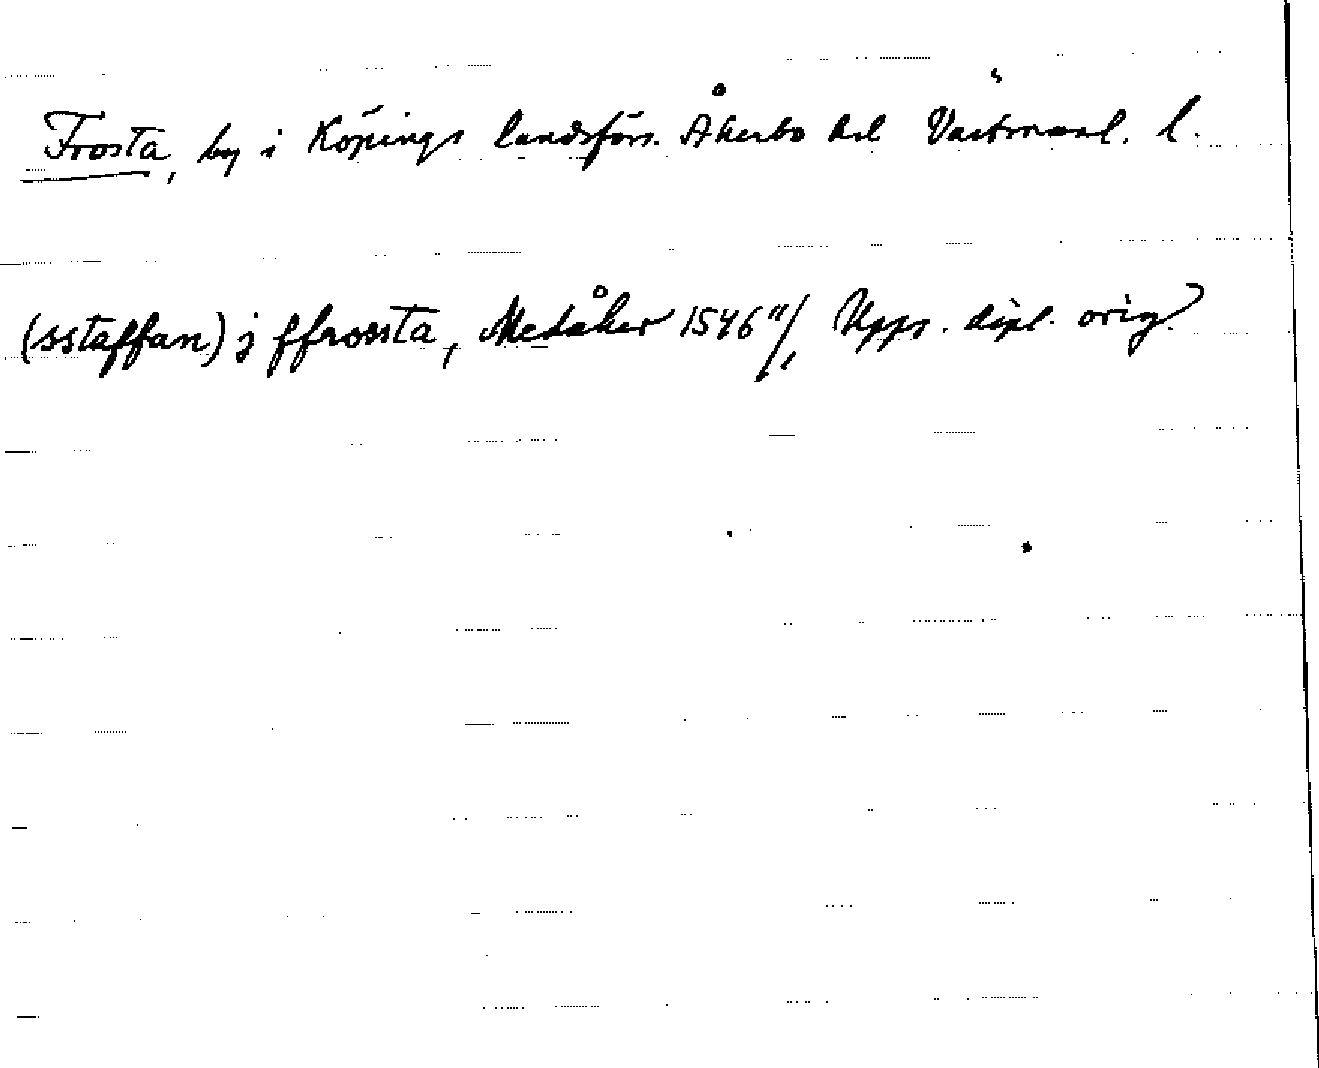 Frosta, by i Köpings landsförs. Åkerbo hd Västmanl. l.
(sstaffan) j ffrossta, Medåker 1546 11/1, Upps. dipl. orig.